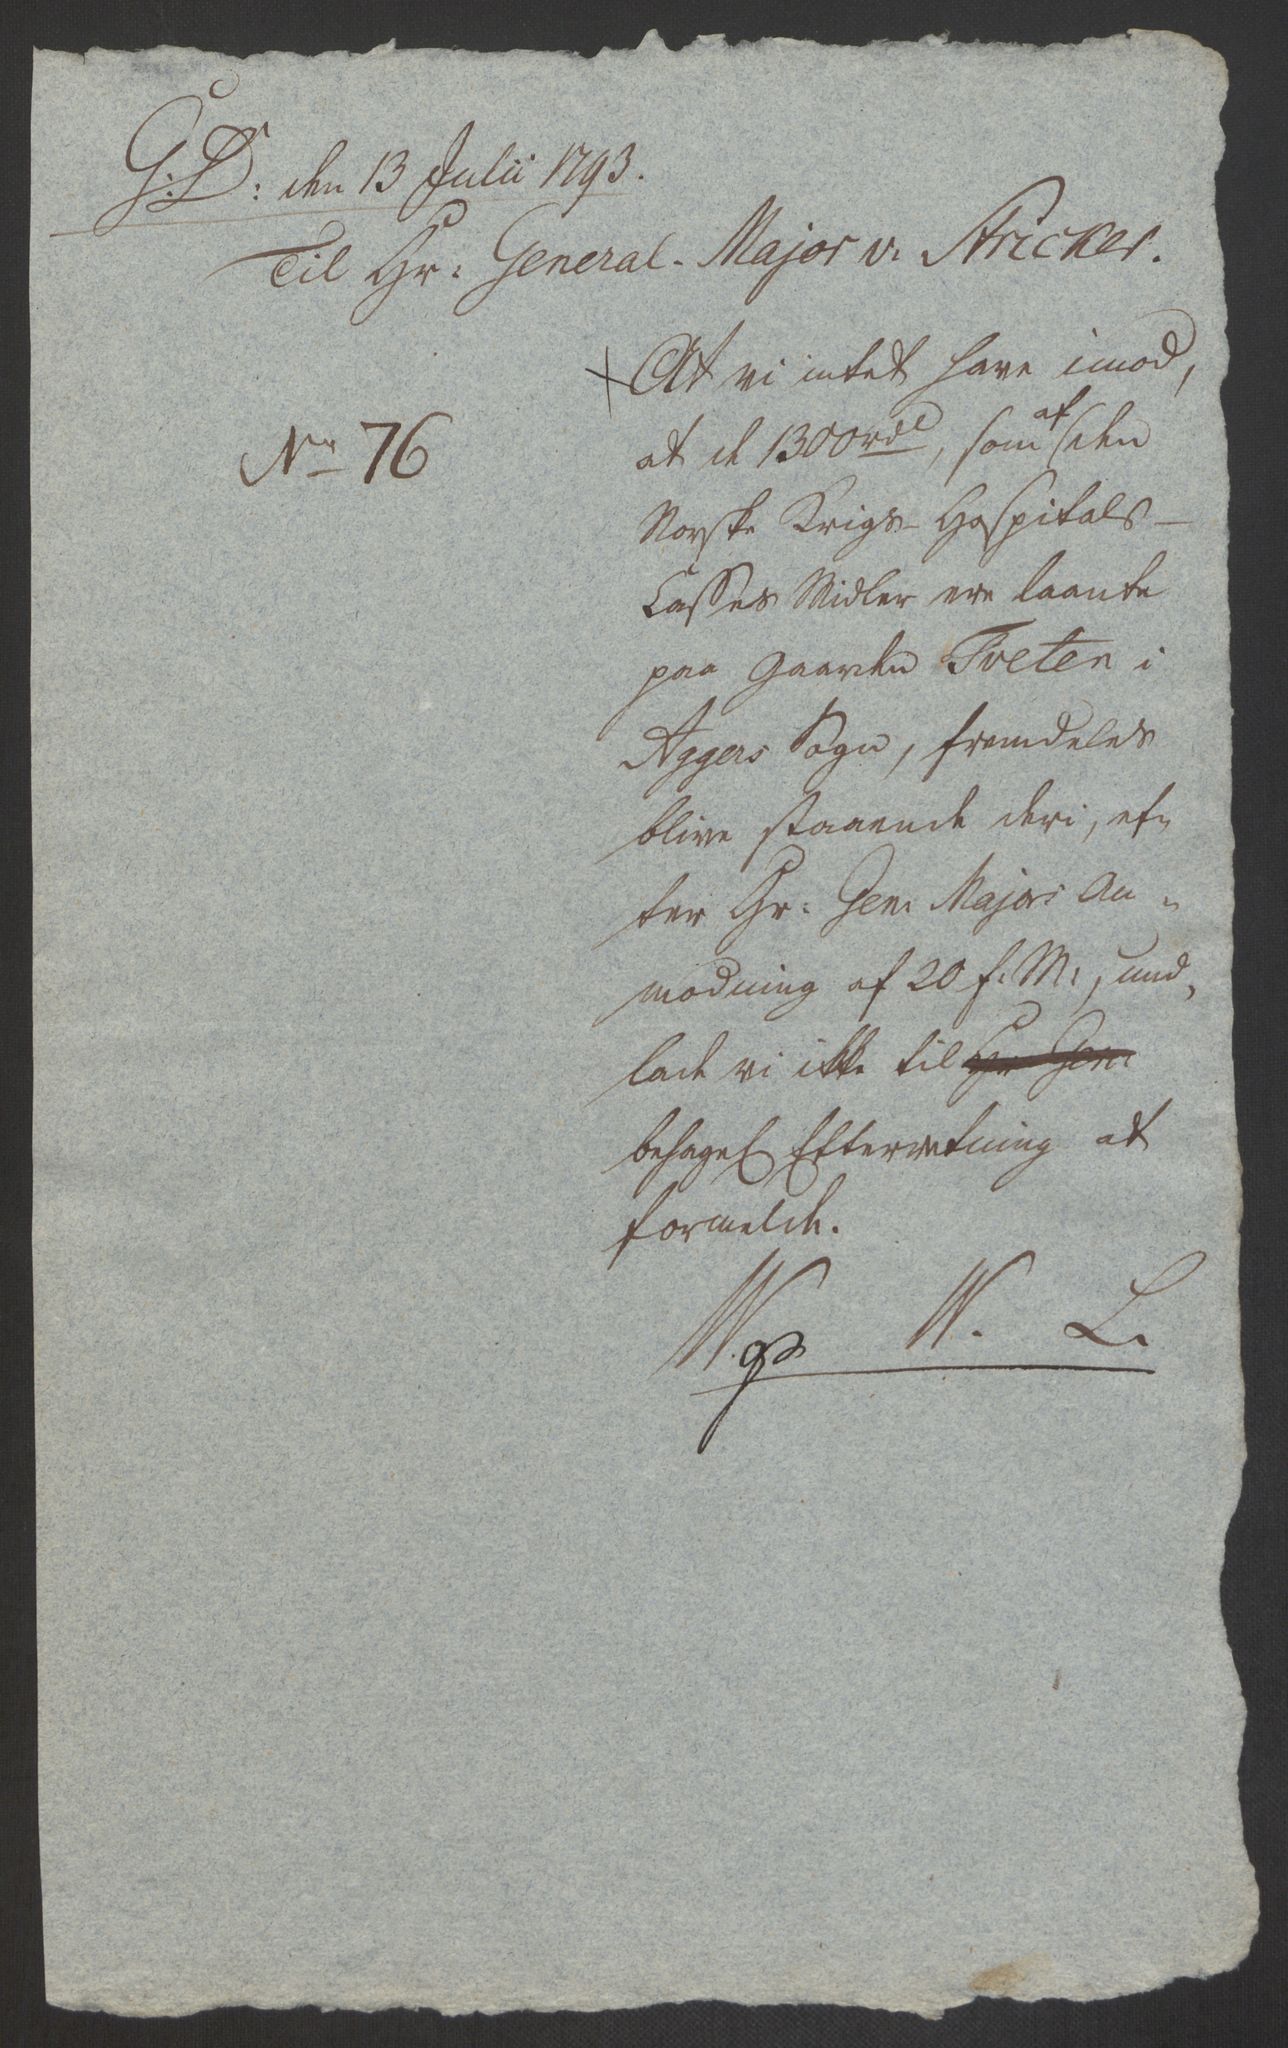 G: D: den 13 Julii 1793.
Til Hr: General-Major v. Stricker.
At vi intet have imod,
No 76
at de 1300 rdl, som af den
Norske Krigs-Hospitals-
Casses Midler ere laante
paa Gaarden Tveten i
Aggers Sogn, fremdeles
blive staaende deri, ef-
ter Hr: Gen: Majors An-
modning af 20 f: M:, und-
lade vi ikke til Hr Gen:
behagel Efterretning at
formelde.
W. W. L.